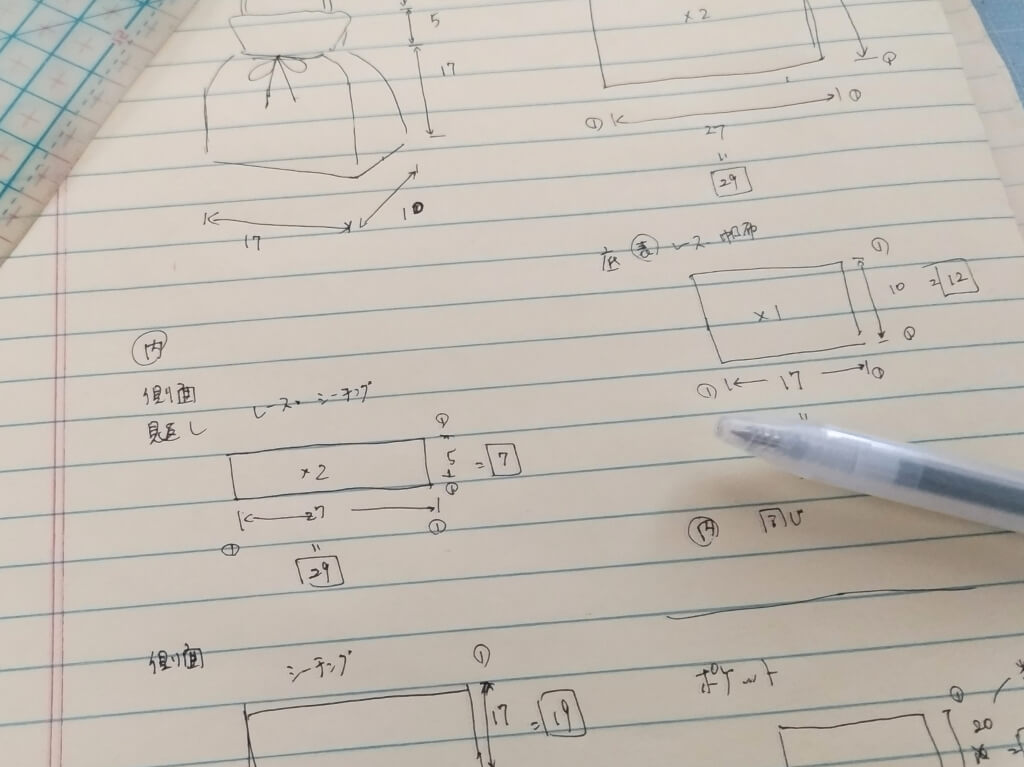 5
17
17
10
×2
① ①
①
27
〃
29
底 表 レース 帆布
①
×1
10 = 12
①
① 17 ①
〃
内
側面
見返し
レース・シーチング
×2
①
5 = 7
①
27
① ①
〃
29
内 同じ
側面
シーチング
①
17 = 19
ポケット
①
20